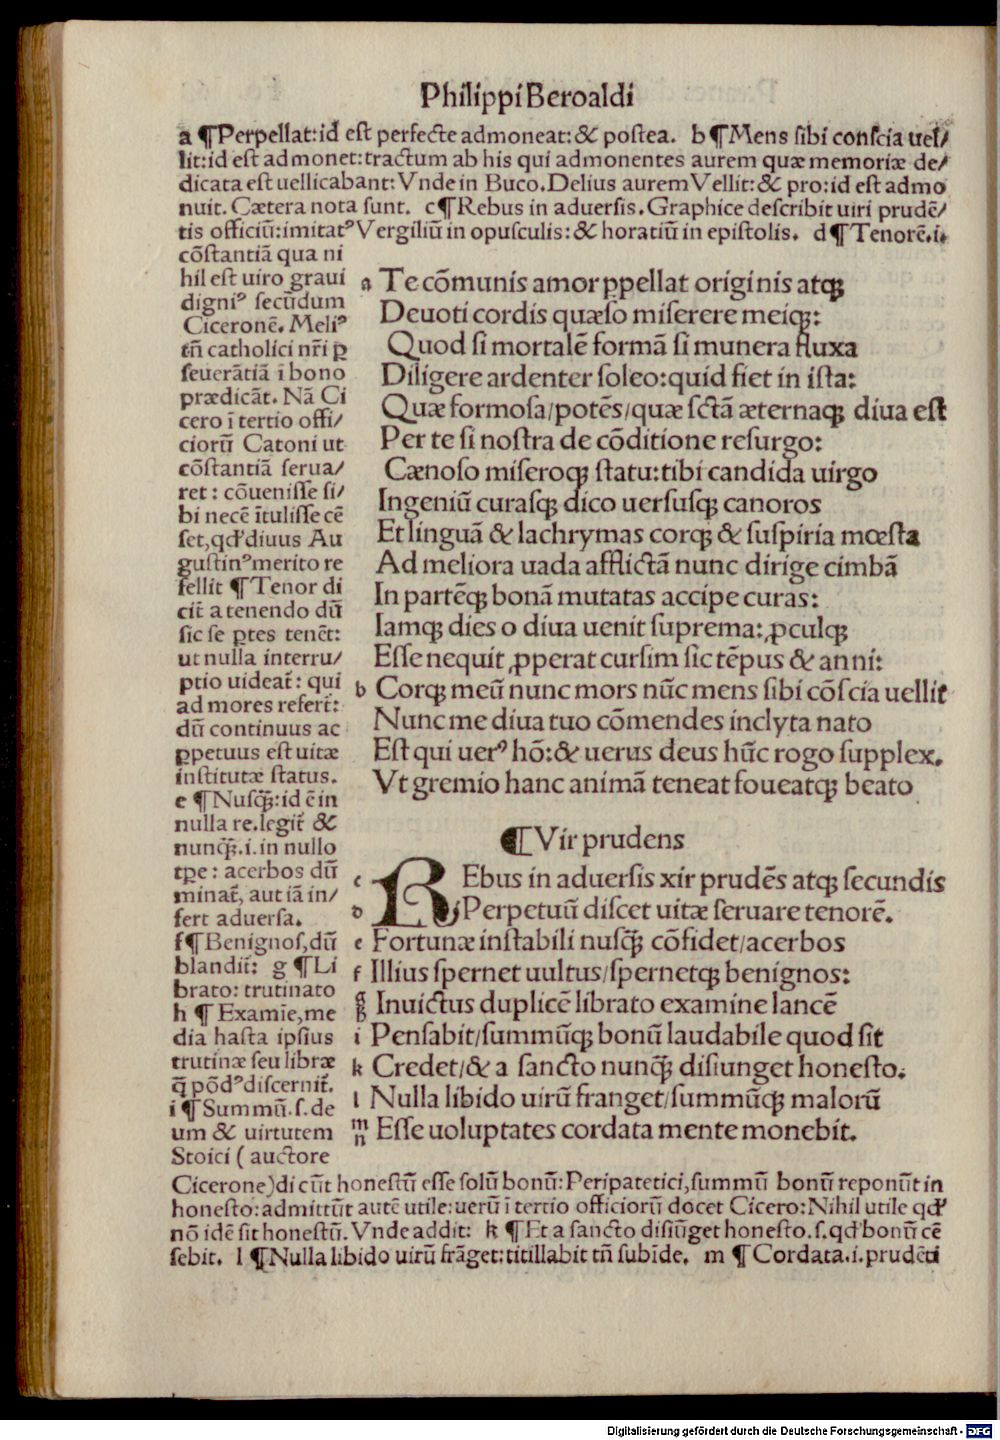 Philippi Beroaldi
a ¶Perpellat:id est perfecte admoneat:& postea. b ¶Mens sibi conscia uel/
lit:id est admonet:tractum ab his qui admonentes aurem quæ memoriæ de/
dicata est uellicabant:Vnde in Buco.Delius aurem Vellit:& pro:id est admo
nuit. Cætera nota sunt. c¶Rebus in aduersis.Graphice describit uiri prudẽ/
tis officiũ:imitatꝰ Vergiliũ in opusculis:& horatiũ in epistolis. d¶Tenorẽ.i.
cõstantiã qua ni
hil est uiro graui
digniꝰ secũdum
Ciceronẽ. Meliꝰ
tñ catholici nr̃i ꝑ
seuerãtiã ĩ bono
prædicãt. Nã Ci
cero ĩ tertio offi/
ciorũ Catoni ut
cõstantiã serua/
ret: cõuenisse si/
bi necẽ ĩtulisse cẽ
set,qđ diuus Au
gustinꝰ merito re
fellit ¶Tenor di
cit̃ a tenendo dũ
sic se ꝑtes tenẽt:
ut nulla interru/
ptio uideat̃: qui
ad mores refert̃:
dũ continuus ac
ꝑpetuus est uitæ
institutæ status.
e ¶Nusꝙ̃:id ẽ in
nulla re.legit̃ &
nunꝙ̃.i.in nullo
tꝑe: acerbos dũ
minat̃, aut iã in/
fert aduersa.
f¶Benignos,dũ
blandit̃: g ¶Li
brato: trutinato
h ¶ Examĩe,me
dia hasta ipsius
trutinæ seu libræ
q̃ põdꝰ discernit̃.
i ¶Summũ.s.de
um & uirtutem
Stoici ( auctore
a Te cõmunis amor ꝑpellat originis atqꝫ
Deuoti cordis quæso miserere meiqꝫ:
Quod si mortalẽ formã si munera fluxa
Diligere ardenter soleo:quid fiet in ista:
Quæ formosa/potẽs/quæ sctã æternaqꝫ diua est
Per te si nostra de cõditione resurgo:
Cænoso miseroqꝫ statu:tibi candida uirgo
Ingeniũ curasqꝫ dico uersusqꝫ canoros
Et linguã & lachrymas corqꝫ & suspiria mœsta
Ad meliora uada afflictã nunc dirige cimbã
In partẽqꝫ bonã mutatas accipe curas:
Iamqꝫ dies o diua uenit suprema:ꝓculqꝫ
Esse nequit ꝓperat cursim sic tẽpus & anni:
b Corqꝫ meũ nunc mors nũc mens sibi cõscia uellit
Nunc me diua tuo cõmendes inclyta nato
Est qui uerꝰ hõ:& uerus deus hũc rogo supplex.
Vt gremio hanc animã teneat foueatqꝫ beato
¶Vir prudens
c REbus in aduersis xir prudẽs atqꝫ secundis
d Perpetuũ discet uitæ seruare tenorẽ.
e Fortunæ instabili nusꝙ̃ cõfidet/acerbos
f Illius spernet uultus/spernetqꝫ benignos:
g h Inuictus duplicẽ librato examine lancẽ
i Pensabit/summũqꝫ bonũ laudabile quod sit
k Credet/& a sancto nunꝙ̃ disiunget honesto.
l Nulla libido uirũ franget/summũqꝫ malorũ
m n Esse uoluptates cordata mente monebit.
Cicerone)dicũt honestũ esse solũ bonũ:Peripatetici,summũ bonũ reponũt in
honesto:admittũt autẽ utile:uerũ ĩ tertio officiorũ docet Cicero:Nihil utile qđ
nõ idẽ sit honestũ.Vnde addit: k ¶Et a sancto disiũget honesto.s.qđ bonũ cẽ
sebit. l ¶Nulla libido uirũ frãget:titillabit tñ subĩde. m ¶Cordata.i.prudẽti
Digitalisierung gefördert durch die Deutsche Forschungsgemeinschaft - DFG